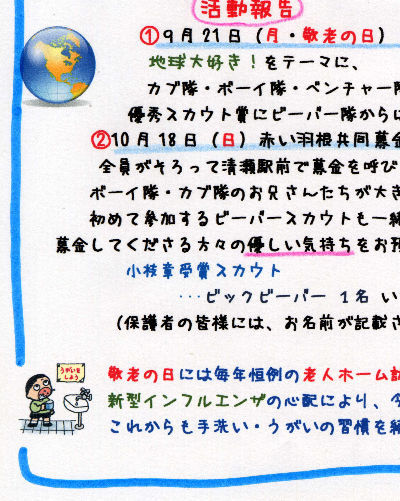 活動報告
①9月21日（月・敬老の日）
地球大好き！をテーマに、
カブ隊・ボーイ隊・ベンチャー
優秀スカウト賞にビーバー隊から
②10月18日（日）赤い羽根共同募金
全員がそろって清瀬駅前で募金を呼び
ボーイ隊・カブ隊のお兄さんたちが大き
初めて参加するビーバースカウトも一緒
募金してくださる方々の優しい気持ちをお預
小枝章受賞スカウト
…ビックビーバー 1名 い
（保護者の皆様には、お名前が記載さ
うがいをしよう
敬老の日には毎年恒例の老人ホーム
新型インフルエンザの心配により、今
これからも手洗い・うがいの習慣を